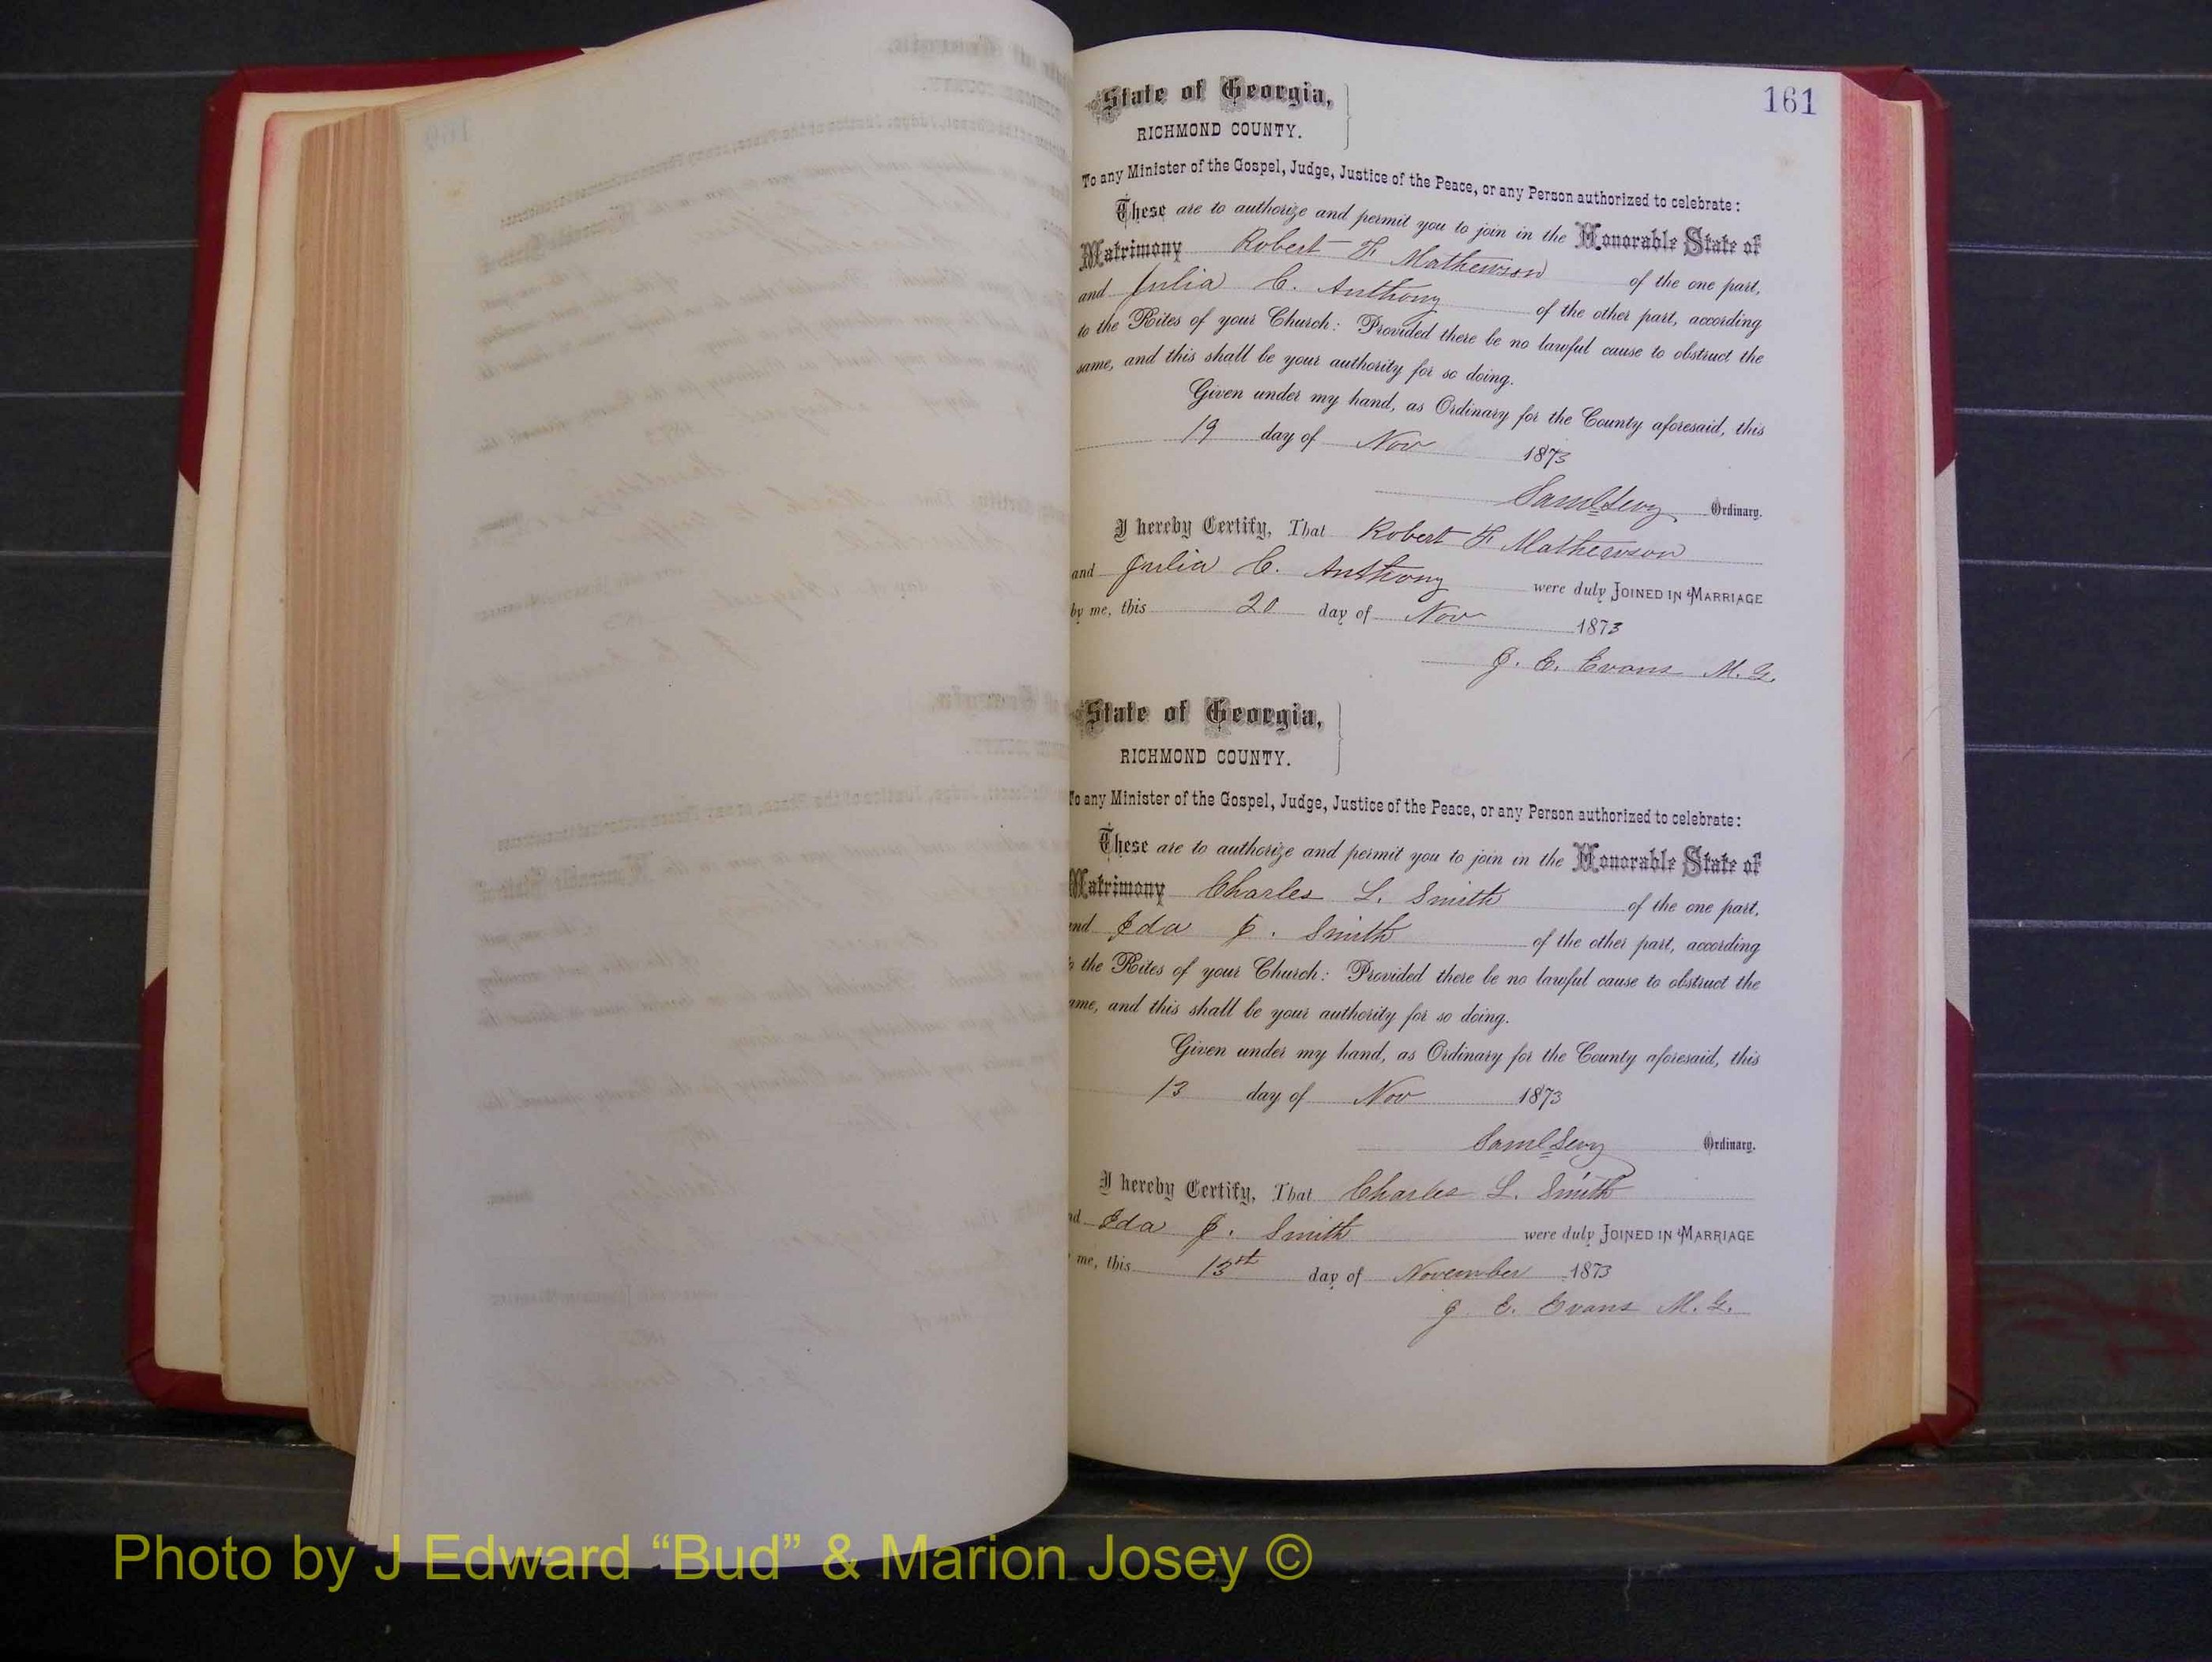 161
State of Georgia,
RICHMOND COUNTY.
To any Minister of the Gospel, Judge, Justice of the Peace, or any Person authorized to celebrate:
These are to authorize and permit you to join in the Honorable State of
Matrimony Robert F. Mathewson of the one part,
and Julia C. Anthony of the other part, according
to the Rites of your Church: Provided there be no lawful cause to obstruct the
same, and this shall be your authority for so doing.
Given under my hand, as Ordinary for the County aforesaid, this
19 day of Nov 1873
Saml Levy Ordinary.
I hereby Certify, That Robert F Mathewson
and Julia C. Anthony were duly JOINED IN MARRIAGE
by me, this 20 day of Nov 1873
J. E. Evans M. G.
State of Georgia,
RICHMOND COUNTY.
To any Minister of the Gospel, Judge, Justice of the Peace, or any Person authorized to celebrate:
These are to authorize and permit you to join in the Honorable State of
Matrimony Charles L. Smith of the one part,
and Ida J. Smith of the other part, according
to the Rites of your Church: Provided there be no lawful cause to obstruct the
ame, and this shall be your authority for so doing.
Given under my hand, as Ordinary for the County aforesaid, this
13 day of Nov 1873
Saml Levy Ordinary.
I hereby Certify, That Charles L. Smith
nd Ida J. Smith were duly JOINED IN MARRIAGE
me, this 13th day of November 1873
J. E. Evans M. G.
Photo by J Edward “Bud” & Marion Josey ©